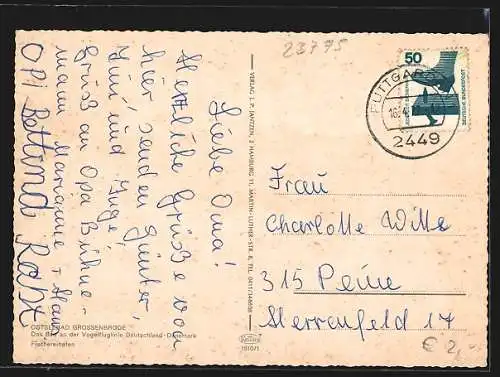 23795
Liebe Oma!
Herzliche Grüße von
hier senden Günter,
und Inge,
Gruß an Opa Bühne-
mann Marianne + Hans
Opi
VERLAG L. P. JANTZEN, 2 HAMBURG 11, MARTIN-LUTHER-STR.
OSTSEEBAD GROSSENBRODE
Das Bad an der Vogelfluglinie Deutschland-Dänemark
Fischereihafen
1510/1
50
DEUTSCHE BUNDESPOST
PUTTGARDEN
2449
Frau
Charlotte Wille
315 Peine
Herrenfeld 17
€ 2,-